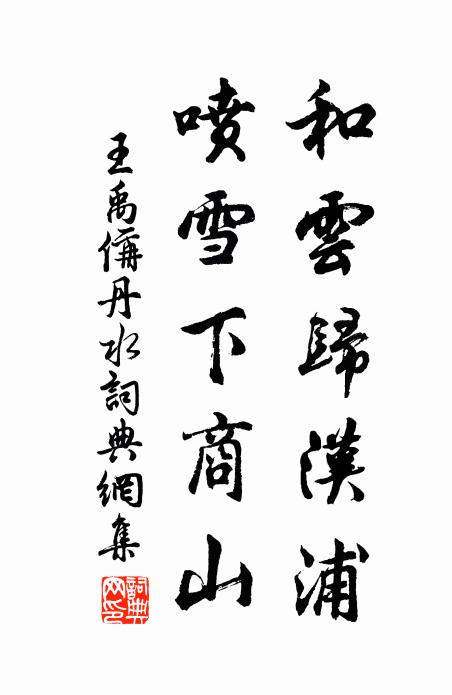 和雲歸漢浦
噴雪下商山
王禹偁丹水詞典網集
詞典網印